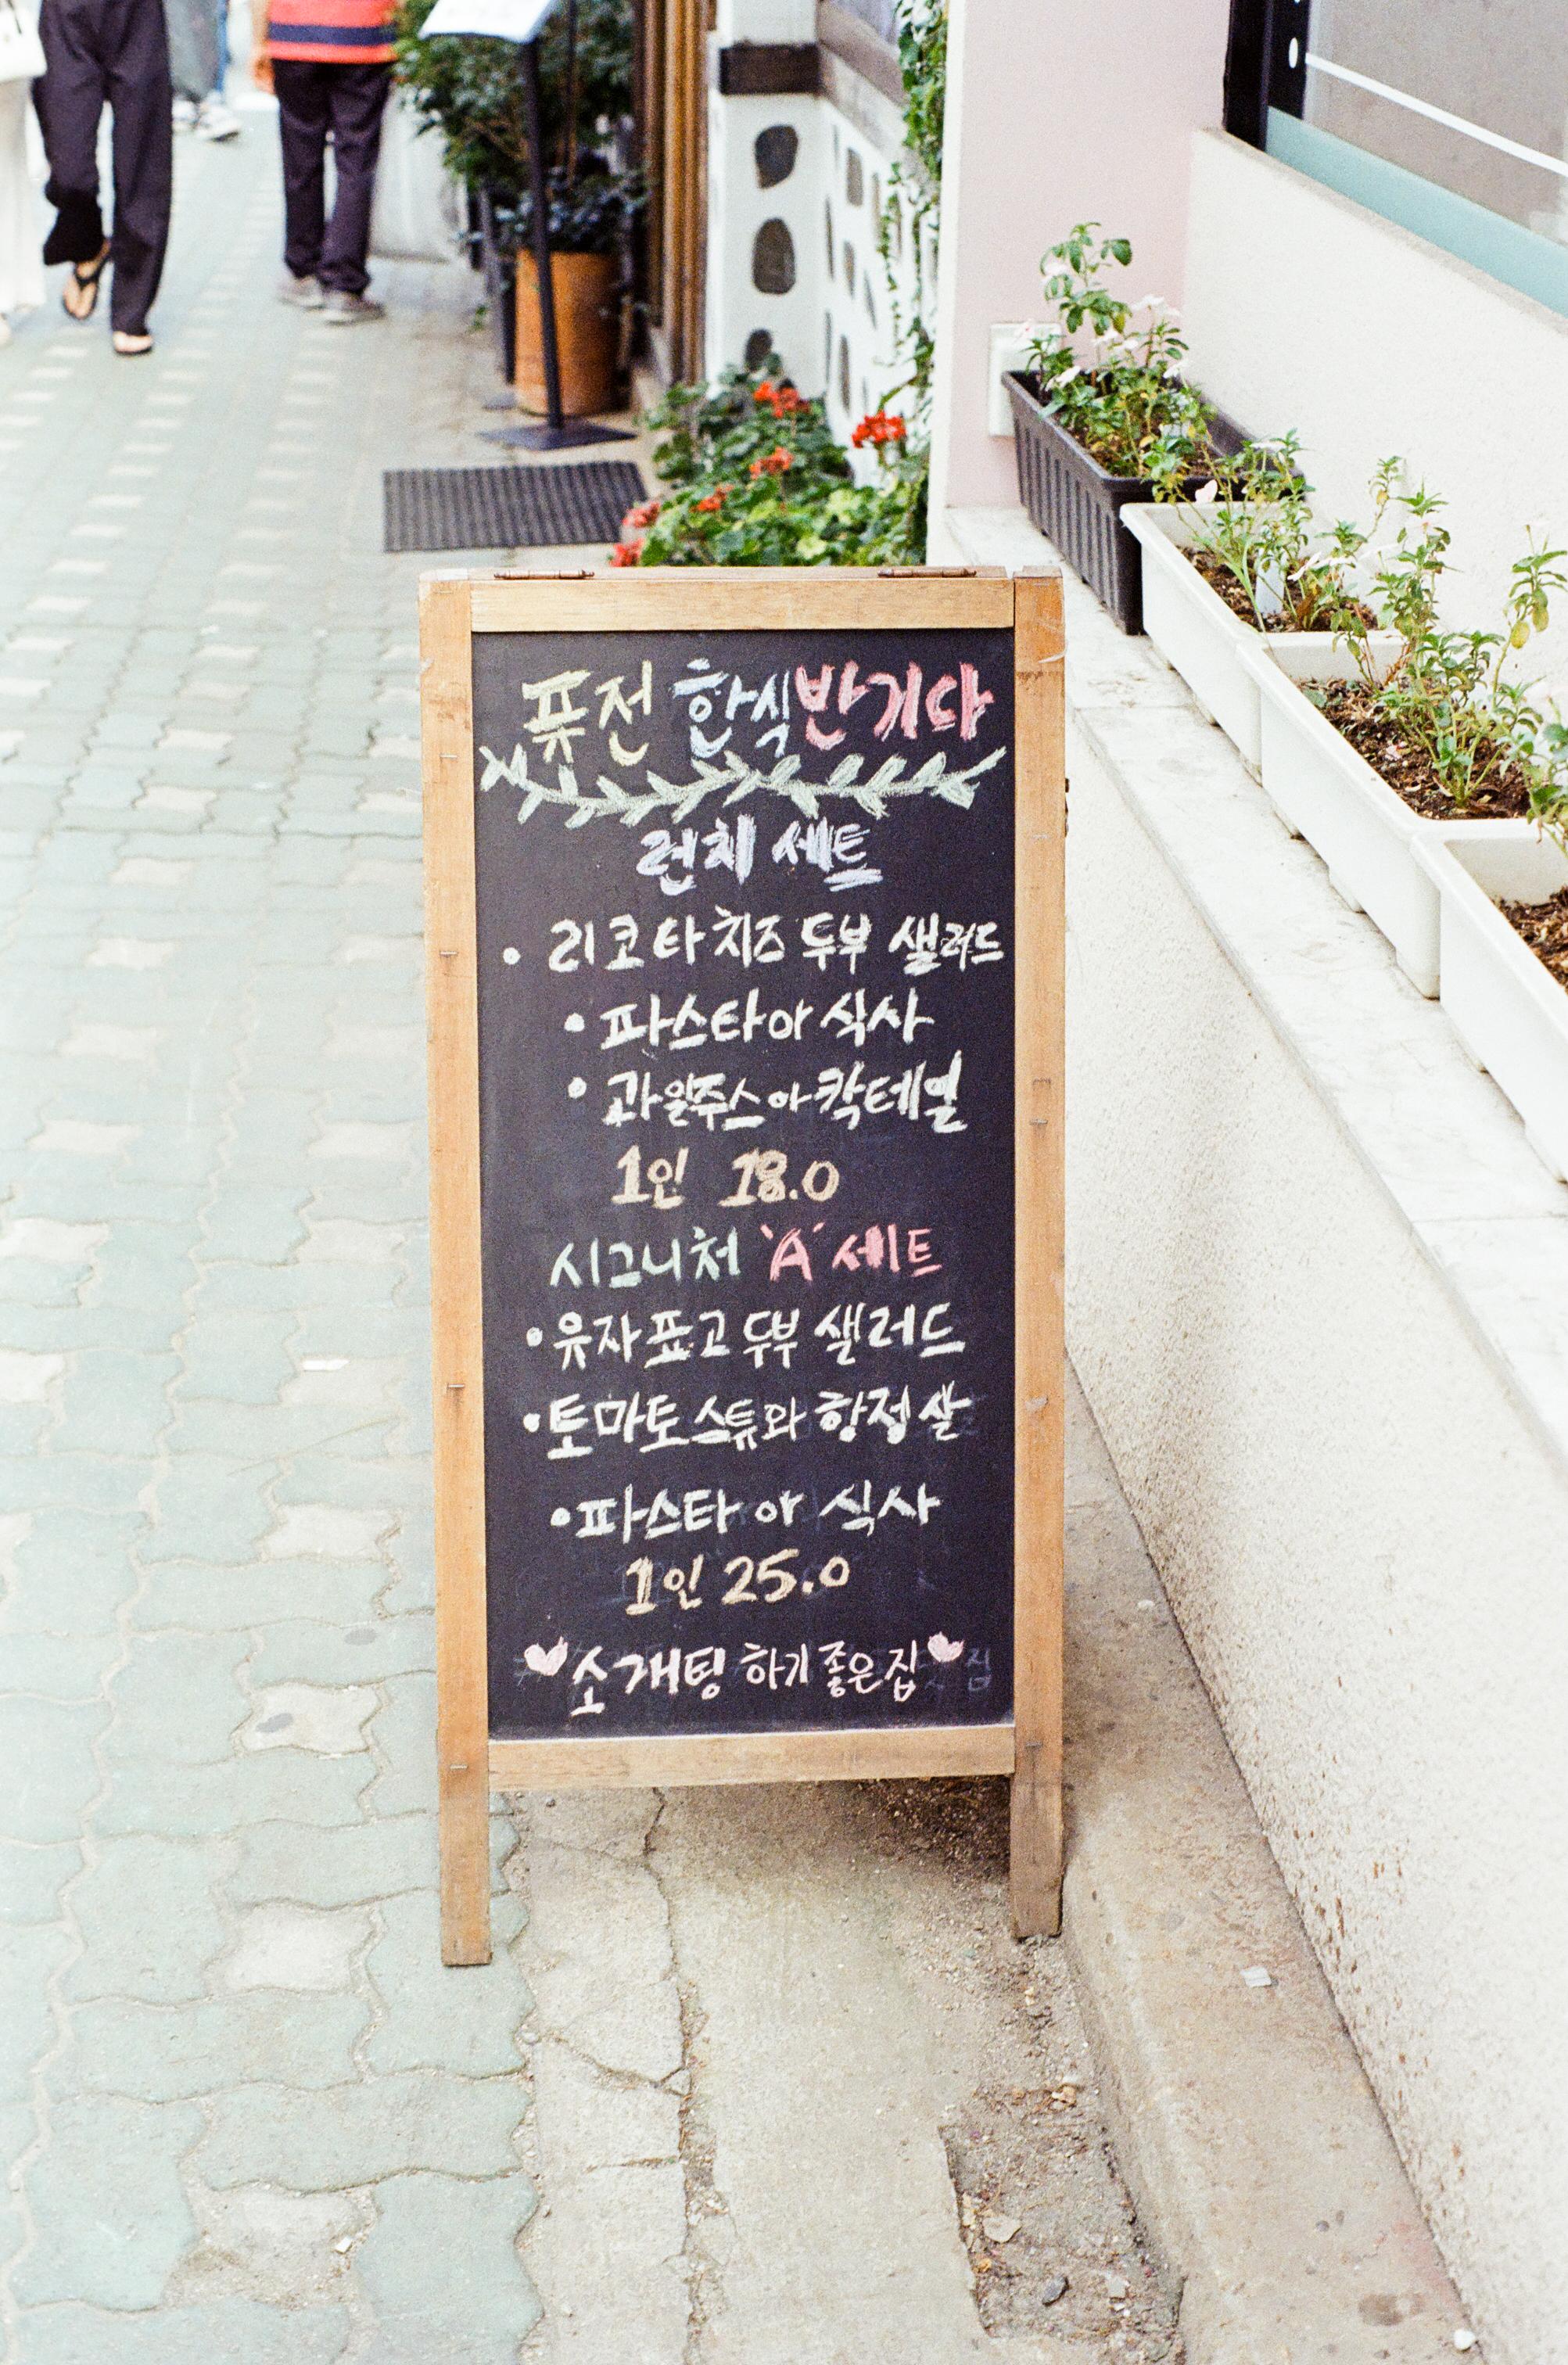 퓨전 한식 반기다
런치 세트
• 리코타 치즈 두부 샐러드
• 파스타 or 식사
• 과일주스 or 칵테일
1인 18.0
시그니처 'A' 세트
• 유자 표고 두부 샐러드
• 토마토 스튜와 항정살
• 파스타 or 식사
1인 25.0
♥소개팅 하기 좋은 집♥